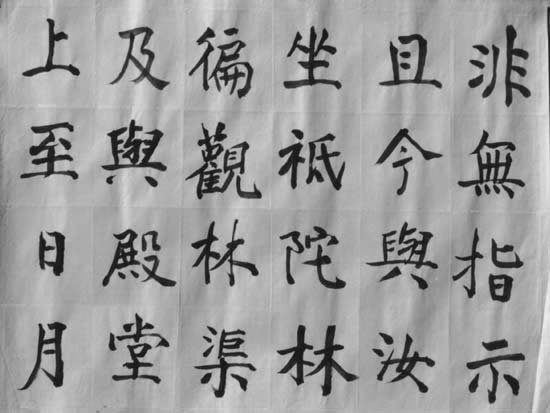 非無指示
且今與汝
坐祇陀林
徧觀林渠
及與殿堂
上至日月